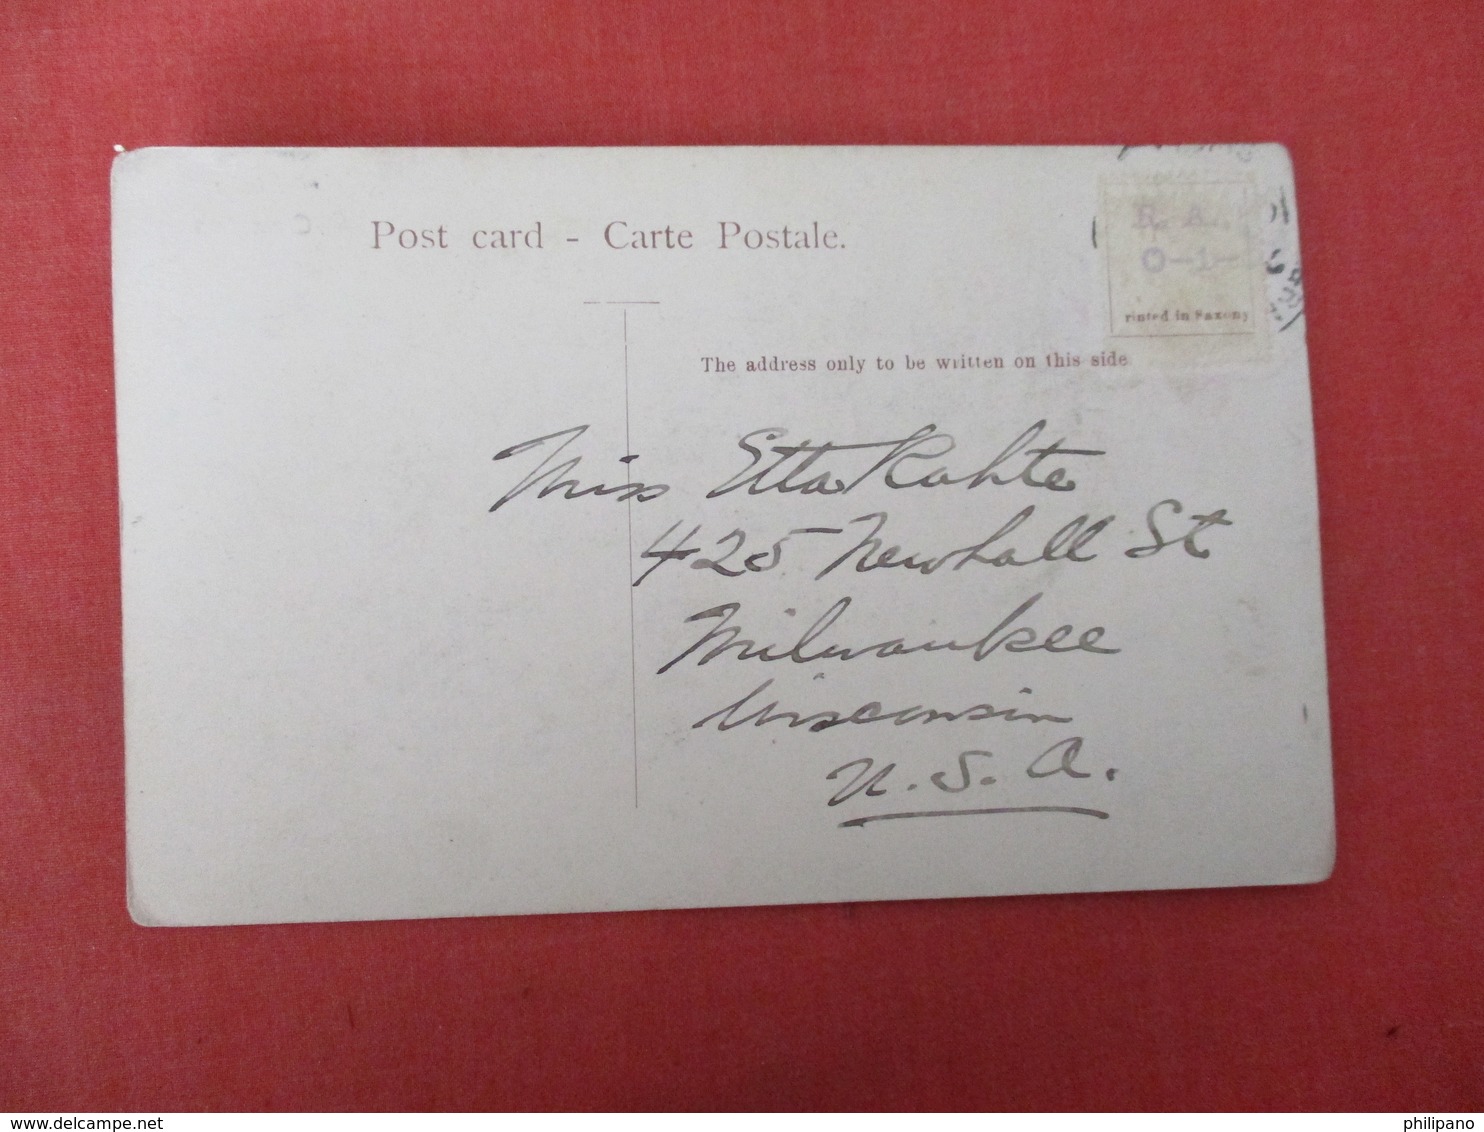 Post card - Carte Postale.
R. A.
O-1-
rinted in Saxony
The address only to be written on this side
Miss Etta Kahte
425 Newhall St
Milwaukee
Wisconsin
U. S. A.
www.delcampe.net
philipano